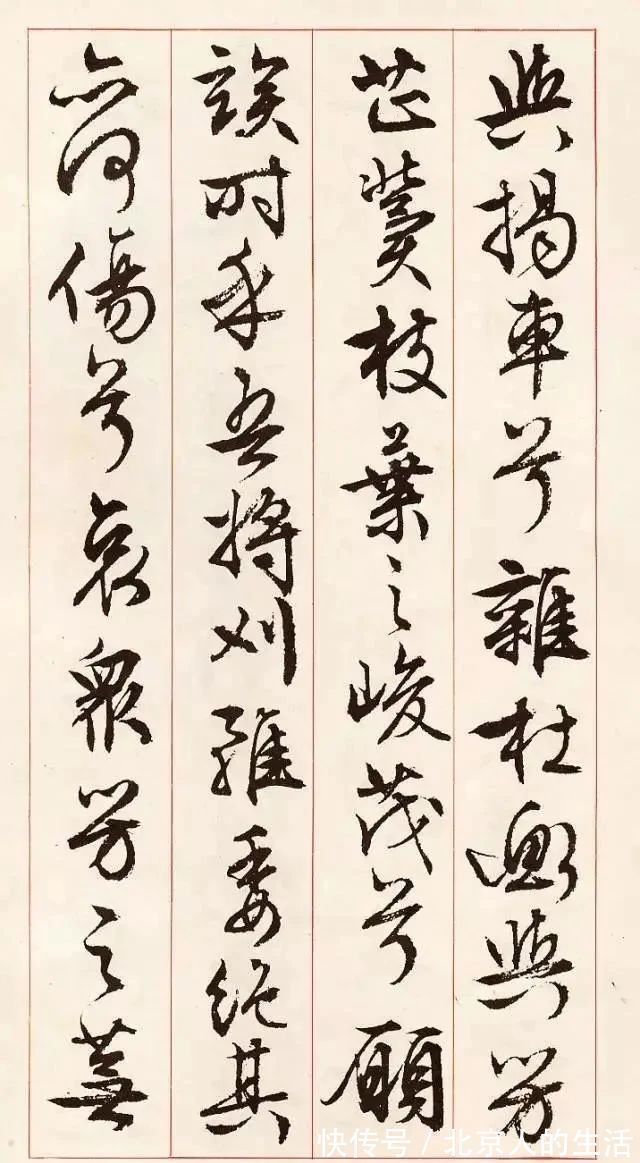 與揭車兮雜杜衡與芳
芷冀枝葉之峻茂兮願
竢時乎吾將刈雖委絕其
亦何傷兮哀眾芳之蕪
快传号 / 北京人的生活